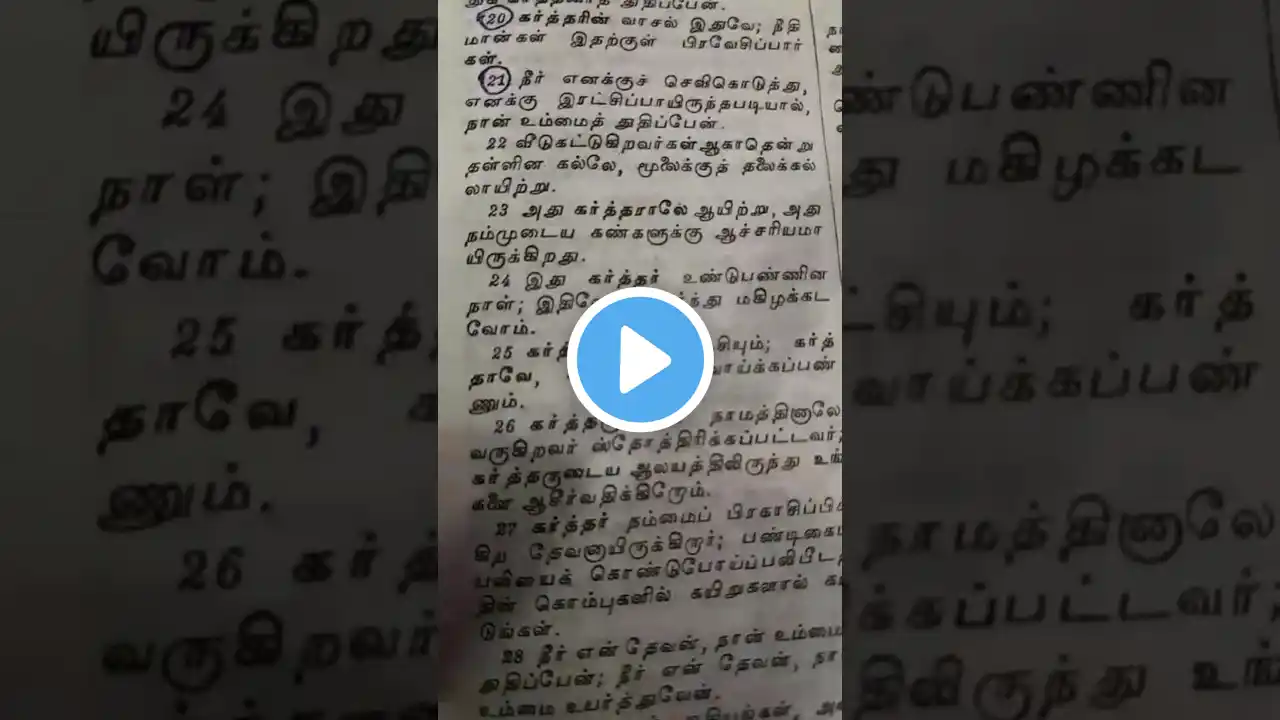 துக் கர்த்தரைத் துதிப்பேன்.
20 கர்த்தரின் வாசல் இதுவே; நீதி
மான்கள் இதற்குள் பிரவேசிப்பார்
கள்.
21 நீர் எனக்குச் செவிகொடுத்து,
எனக்கு இரட்சிப்பாயிருந்தபடியால்,
நான் உம்மைத் துதிப்பேன்.
22 வீடுகட்டுகிறவர்கள் ஆகாதென்று
தள்ளின கல்லே, மூலைக்குத் தலைக்கல்
லாயிற்று.
23 அது கர்த்தராலே ஆயிற்று, அது
நம்முடைய கண்களுக்கு ஆச்சரியமா
யிருக்கிறது.
24 இது கர்த்தர் உண்டுபண்ணின
நாள்; இதிலே ந்து மகிழக்கட
வோம்.
25 கர்த் சியும்; கர்த்
தாவே, வாய்க்கப்பண்
ணும்.
26 கர்த்தரு நாமத்தினாலே
வருகிறவர் ஸ்தோத்திரிக்கப்பட்டவர்;
கர்த்தருடைய ஆலயத்திலிருந்து உங்
களை ஆசீர்வதிக்கிறோம்.
27 கர்த்தர் நம்மைப் பிரகாசிப்பிக்
கிற தேவனாயிருக்கிறார்; பண்டிகைப்
பலியைக் கொண்டுபோய்ப்பலிபீடத்
தின் கொம்புகளில் கயிறுகளால் கட்
டுங்கள்.
28 நீர் என் தேவன், நான் உம்மை
துதிப்பேன்; நீர் என் தேவன், நா
உம்மை உயர்த்துவேன்.